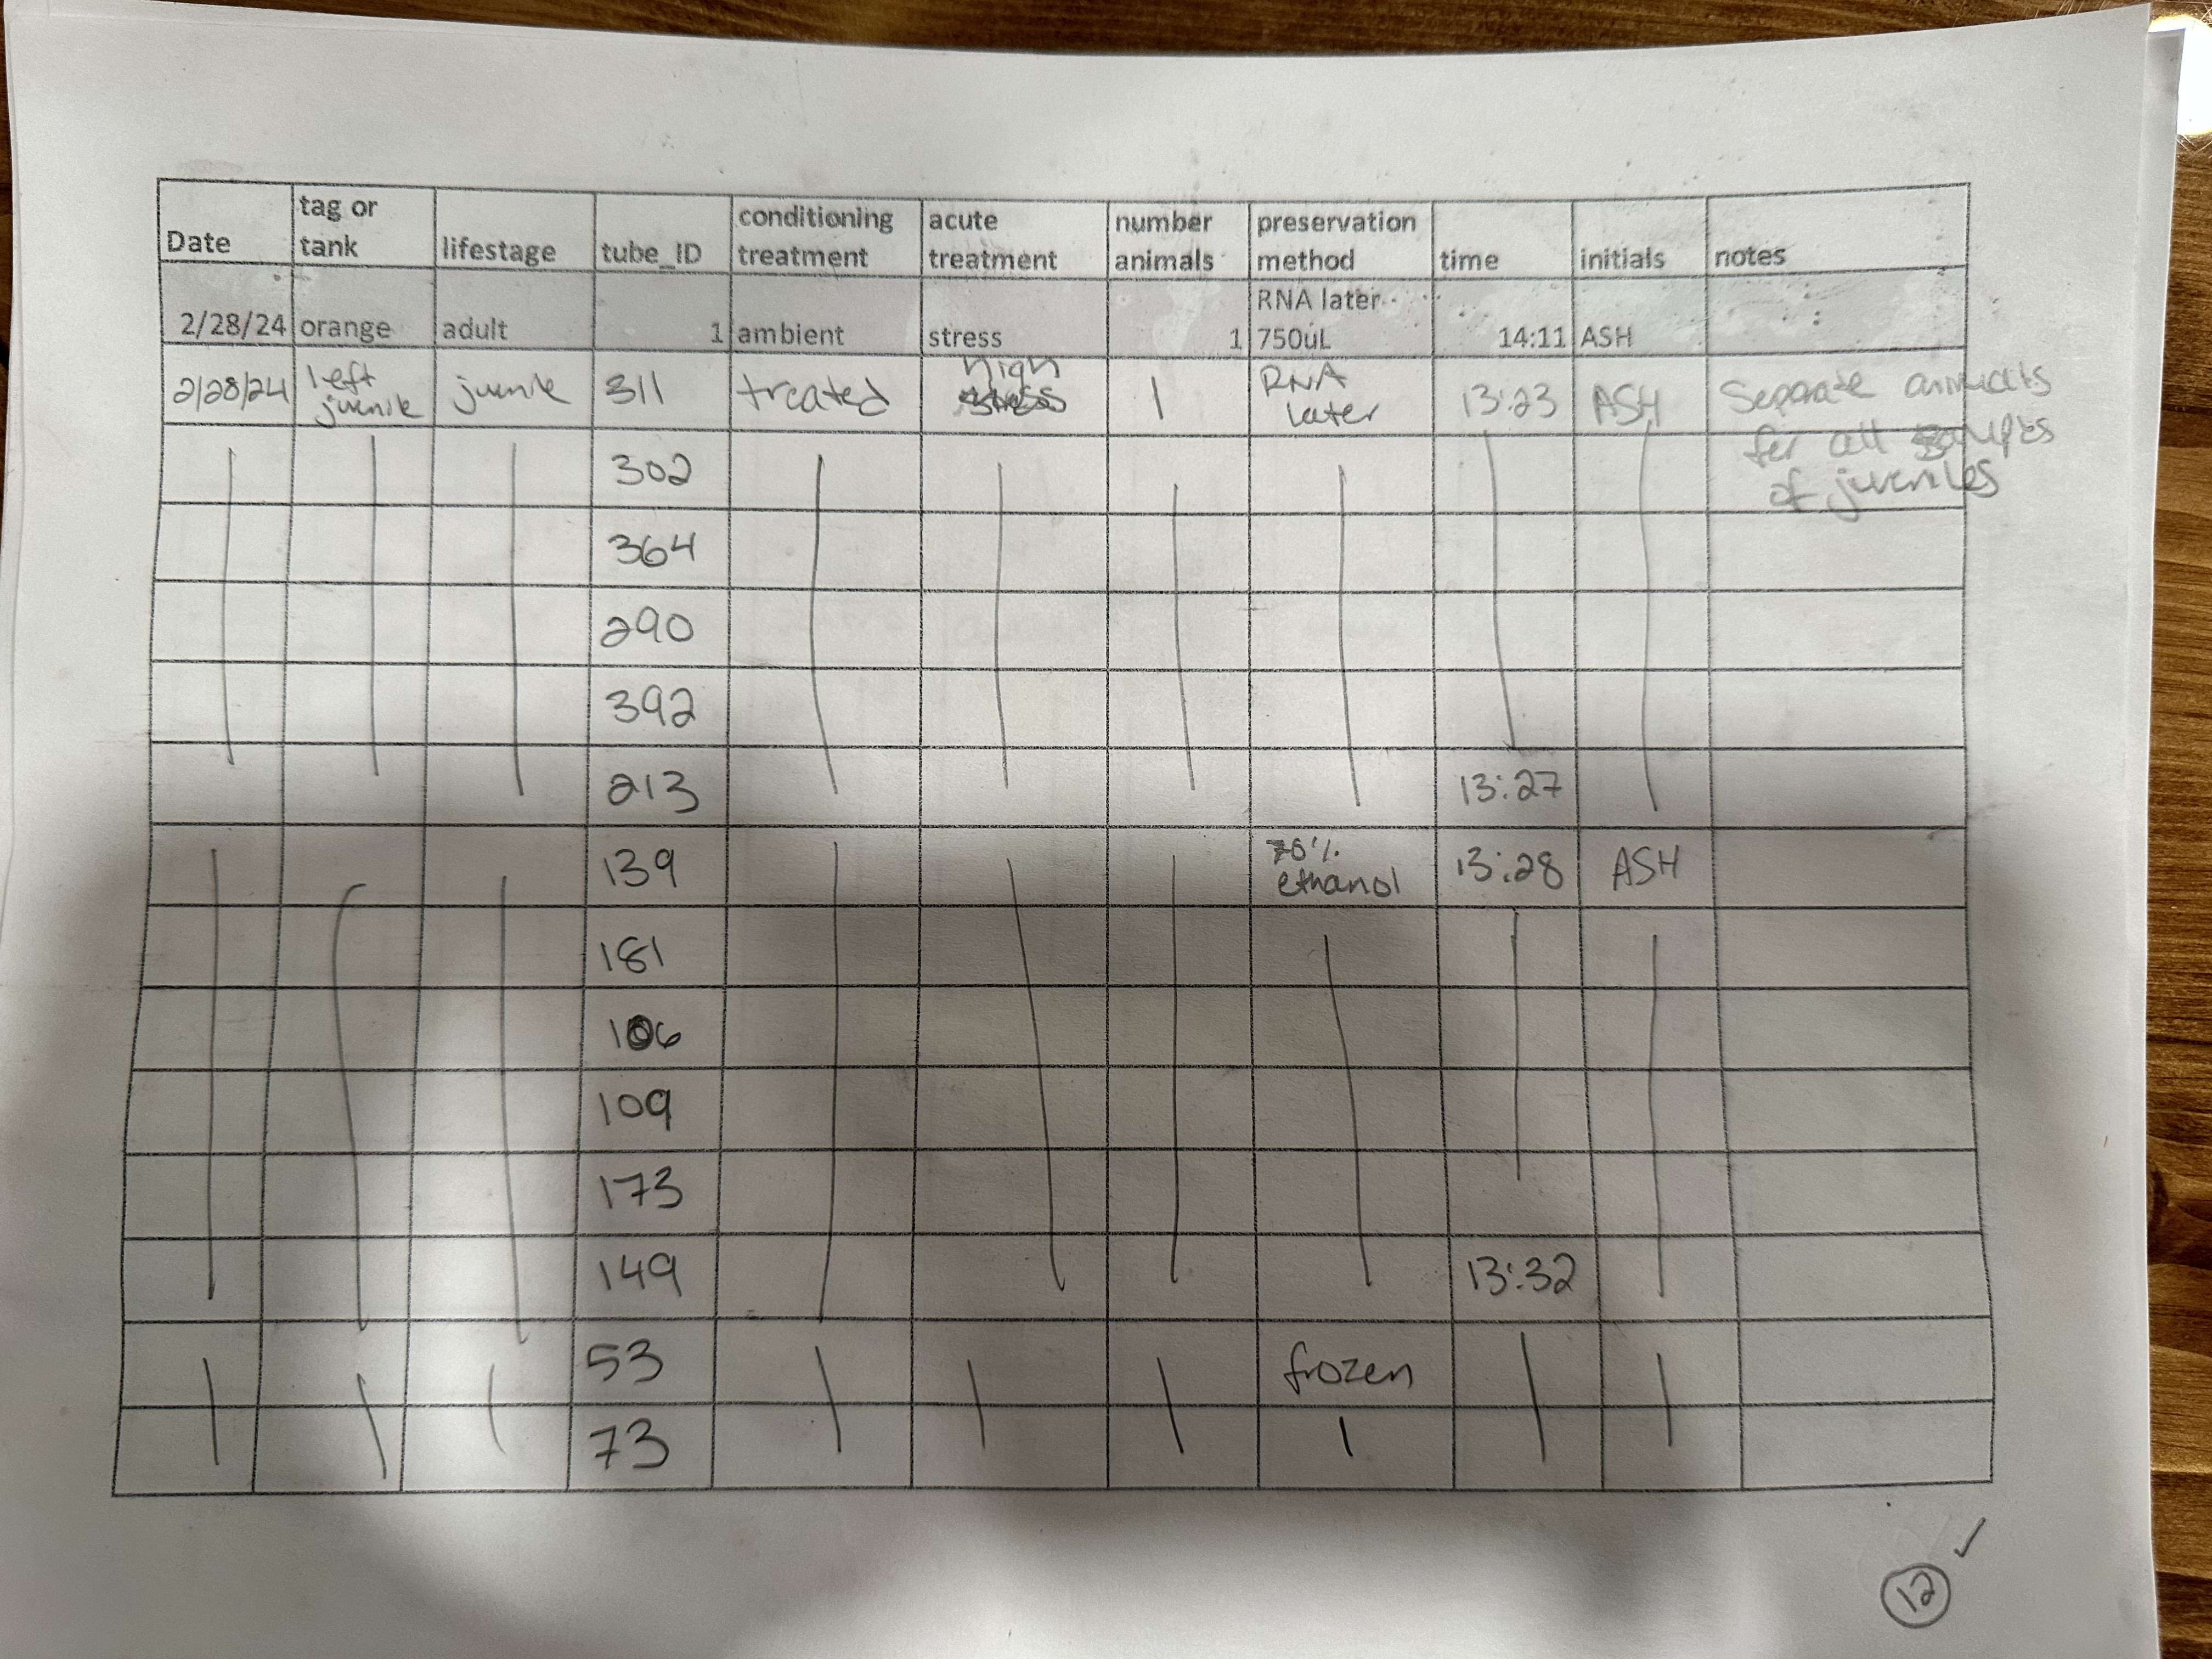 Date tag or tank lifestage tube_ID conditioning treatment acute treatment number animals preservation method time initials notes
2/28/24 orange adult 1 ambient stress 1 RNA later 750uL 14:11 ASH
2/28/24 left juvenile juvenile 311 treated high 1 RNA later 13:23 ASH Separate animals for all samples of juveniles
302
364
290
392
213 13:27
139 70% ethanol 13:28 ASH
161
106
109
173
149 13:32
53 frozen
73
12